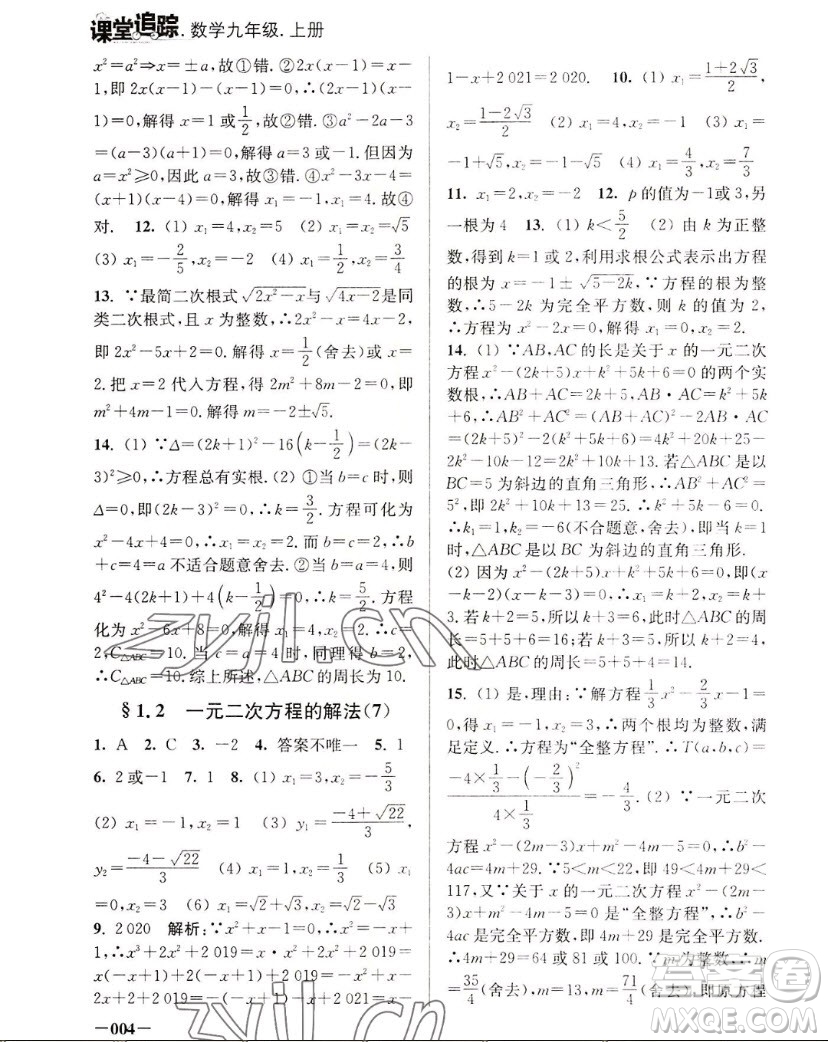 课堂追踪.数学九年级.上册
x²=a²⇒x=±a,故①错.②2x(x-1)=x-
1,即 2x(x-1)-(x-1)=0,∴(2x-1)(x-
1)=0,解得 x=1 或1/2,故②错.③a²-2a-3
=(a-3)(a+1)=0,解得 a=3 或-1.但因为
a=x²≥0,因此 a=3,故③错.④x²-2x-3=
(x+1)(x-3)=0,解得 x₁=-1,x₂=3,故④
对. 12. (1) x₁=4,x₂=5 (2) x₁=x₂=√5
(3) x₁=-2/5,x₂=0 (4) x₁=1/2,x₂=3/4
13. ∵最简二次根式√(2x²-x)与√(4x-2)是同
类二次根式,且 x 为整数,∴2x²-x=4x-2,
即 2x²-5x+2=0,解得 x=1/2(舍去)或 x=
2.把 x=2 代入方程,得 2m²+8m-2=0,即
m²+4m-1=0.解得 m=-2±√5.
14. (1) ∵Δ=(2k+1)²-16(k-1/2)=(2k-
3)²≥0,∴方程总有实根.(2) ①当 b=c 时,则
Δ=0,即(2k-3)²=0,∴k=3/2.方程可化为
x²-4x+4=0,∴x₁=x₂=2.而 b=c=2,∴b
+c=4=a 不适合题意舍去.②当 b=a=4,则
4²-4(2k+1)+4(k-1/2)=0,∴k=5/2.方程
化为 x²-6x+8=0,解得 x₁=4,x₂=2,∴c=
2,C△ABC=10.当 c=a=4 时,同理得 b=2,
∴C△ABC=10.综上所述,△ABC 的周长为 10.
§1.2 一元二次方程的解法(7)
1. A 2. C 3. -2 4. 答案不唯一 5. 1
6. 2或-1 7. 1 8. (1) x₁=3,x₂=-5/3
(2) x₁=-1,x₂=1 (3) y₁=(-4+√22)/3,
y₂=(-4-√22)/3 (4) x₁=1,x₂=1/3 (5) x₁
=0,x₂=3 (6) x₁=√2+√3,x₂=√2-√3
9. 2 020 解析:∵x²+x-1=0,∴x²=-x+
1,∴x³+2x²+2 019=x·x²+2x²+2 019=
x(-x+1)+2(-x+1)+2 019=-x²+x-
2x+2+2 019=-x²-x+2 021=-(-x+1)-
—004—
1-x+2 021=2 020. 10. (1) x₁=(1+2√3)/2,
x₂=(1-2√3)/2 (2) x₁=4,x₂=-1 (3) x₁=
-1+√5,x₂=-1-√5 (4) x₁=4/3,x₂=7/3
11. x₁=2,x₂=-2 12. p的值为-1或3,另
一根为 4 13. (1) k<5/2 (2) 由 k 为正整
数,得到 k=1 或 2,利用求根公式表示出方程
的根为 x=-1±√(5-2k),∵方程的解为整
数,∴5-2k 为完全平方数,则 k 的值为 2,
∴方程为 x²+2x=0,解得 x₁=0,x₂=-2.
14. (1) ∵AB,AC 的长是关于 x 的一元二次
方程 x²-(2k+5)x+k²+5k+6=0 的两个实
数根,∴AB+AC=2k+5,AB·AC=k²+5k
+6,∴AB²+AC²=(AB+AC)²-2AB·AC
=(2k+5)²-2(k²+5k+6)=4k²+20k+25-
2k²-10k-12=2k²+10k+13.若△ABC 是以
BC=5 为斜边的直角三角形,∴AB²+AC²=
5²,即 2k²+10k+13=25.∴k²+5k-6=0.
∴k₁=1,k₂=-6(不合题意,舍去),即当 k=1
时,△ABC 是以 BC 为斜边的直角三角形.
(2) 因为 x²-(2k+5)x+k²+5k+6=0,∴(x
-k-2)(x-k-3)=0,∴x₁=k+2,x₂=k+
3.若 k+2=5,所以 k+3=6,此时△ABC 的周
长=5+5+6=16.若 k+3=5,所以 k+2=4,
此时△ABC 的周长=5+5+4=14.
15. (1) 是,理由:∵解方程1/3x²-2/3x-1=
0,得 x₁=-1,x₂=3,∴两个根均为整数,满
足定义.∴方程为“全整方程”.∴T(a,b,c)=
(-4×1/3-(-2/3)²)/(4×1/3)=-4/3.(2) ∵一元二次
方程 x²-(2m-3)x+m²-4m-5=0,∴b²-
4ac=4m+29.∵5<m<22,即 49<4m+29<
117,又∵关于 x 的一元二次方程 x²-(2m-
3)x+m²-4m-5=0 是“全整方程”,∴b²-
4ac 是完全平方数,即 4m+29 是完全平方数.
∴4m+29=64 或 81 或 100.当整数 m,∴m
=35/4(舍去),m=13,m=71/4(舍去),即原方程
zyjl.cn
zyjl.cn